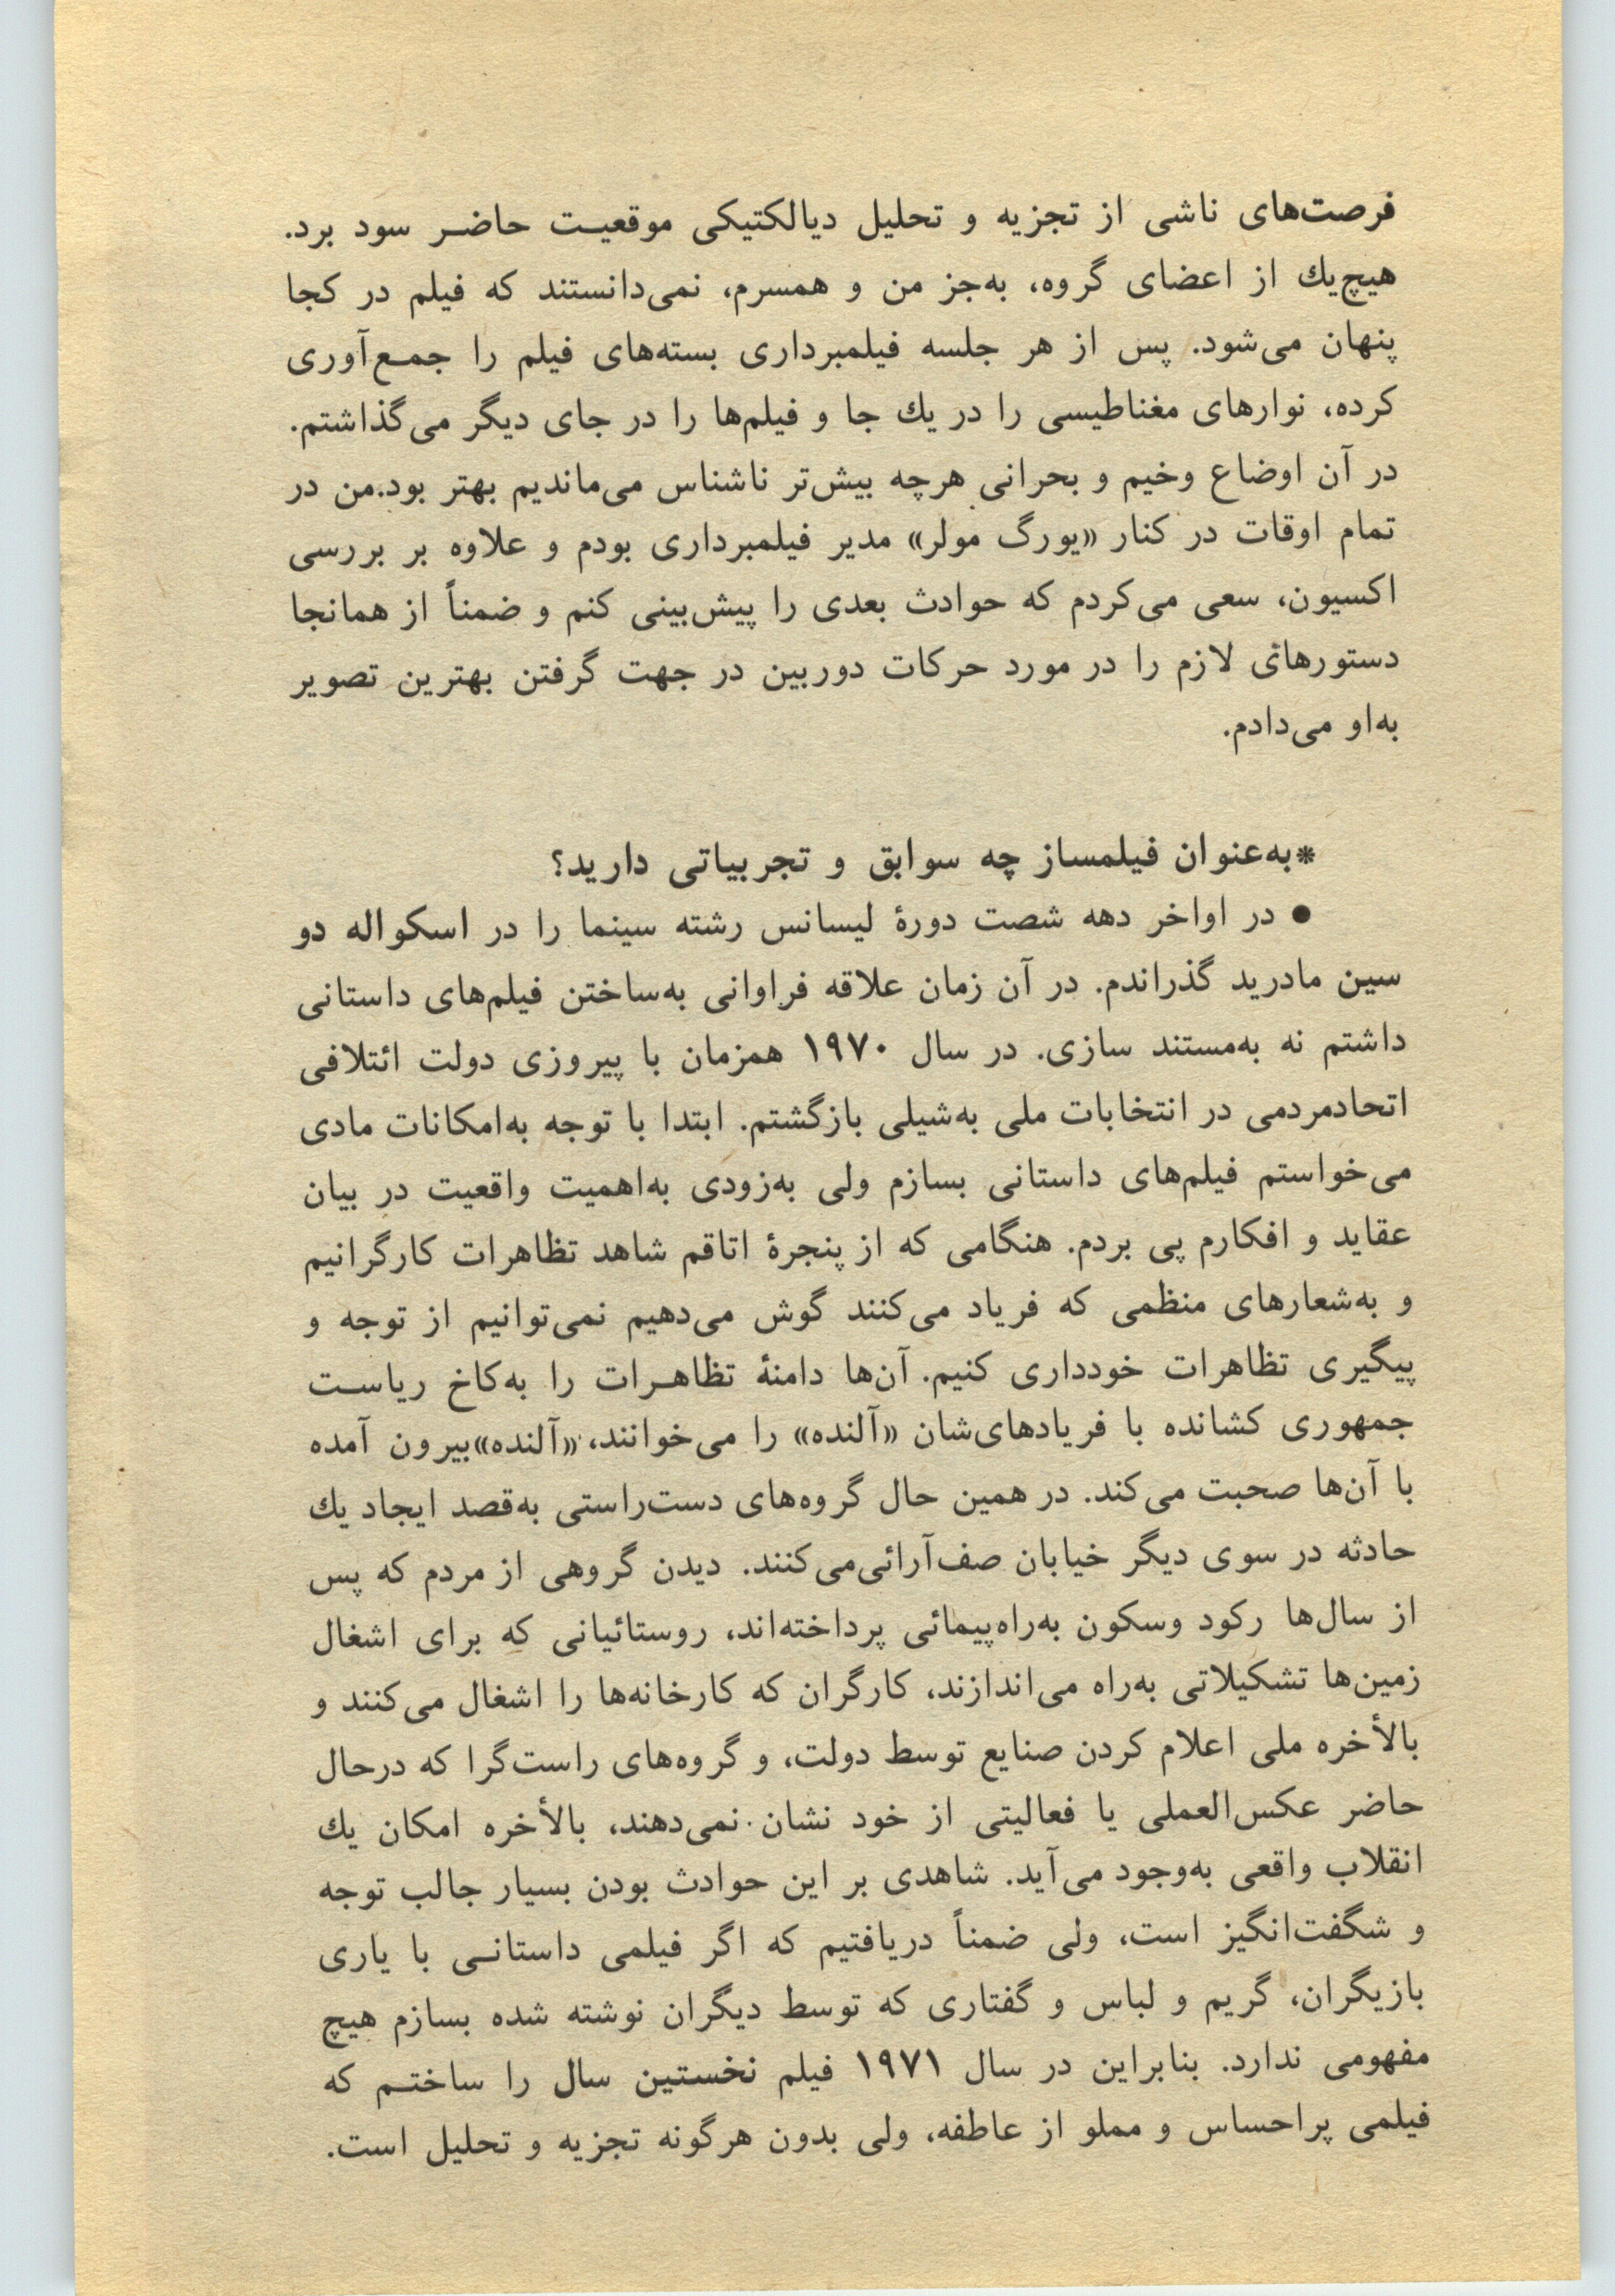 فرصت‌های ناشی از تجزیه و تحلیل دیالکتیکی موقعیـت حاضـر سود برد.
هیچ‌یك از اعضای گروه، به‌جز من و همسرم، نمی‌دانستند که فیلم در کجا
پنهان می‌شود. پس از هر جلسه فیلمبرداری بسته‌های فیلم را جمـع‌آوری
کرده، نوارهای مغناطیسی را در یك جا و فیلم‌ها را در جای دیگر می‌گذاشتم.
در آن اوضاع وخیم و بحرانی هرچه بیش‌تر ناشناس می‌ماندیم بهتر بود.من در
تمام اوقات در کنار «یورگ مولر» مدیر فیلمبرداری بودم و علاوه بر بررسی
اکسیون، سعی می‌کردم که حوادث بعدی را پیش‌بینی کنم و ضمناً از همانجا
دستورهائی لازم را در مورد حرکات دوربین در جهت گرفتن بهترین تصویر
به‌او می‌دادم.
*به‌عنوان فیلمساز چه سوابق و تجربیاتی دارید؟
● در اواخر دهه شصت دورهٔ لیسانس رشته سینما را در اسکواله دو
سین مادرید گذراندم. در آن زمان علاقه فراوانی به‌ساختن فیلم‌های داستانی
داشتم نه به‌مستند سازی. در سال ۱۹۷۰ همزمان با پیروزی دولت ائتلافی
اتحادمردمی در انتخابات ملی به‌شیلی بازگشتم. ابتدا با توجه به‌امکانات مادی
می‌خواستم فیلم‌های داستانی بسازم ولی به‌زودی به‌اهمیت واقعیت در بیان
عقاید و افکارم پی بردم. هنگامی که از پنجرهٔ اتاقم شاهد تظاهرات کارگرانیم
و به‌شعارهای منظمی که فریاد می‌کنند گوش می‌دهیم نمی‌توانیم از توجه و
پیگیری تظاهرات خودداری کنیم. آن‌ها دامنهٔ تظاهـرات را به‌کاخ ریاسـت
جمهوری کشانده با فریادهای‌شان «آلنده» را می‌خوانند، «آلنده»بیرون آمده
با آن‌ها صحبت می‌کند. در همین حال گروه‌های دست‌راستی به‌قصد ایجاد یك
حادثه در سوی دیگر خیابان صف‌آرائی‌می‌کنند. دیدن گروهی از مردم که پس
از سال‌ها رکود وسکون به‌راه‌پیمائی پرداخته‌اند، روستائیانی که برای اشغال
زمین‌ها تشکیلاتی به‌راه می‌اندازند، کارگران که کارخانه‌ها را اشغال می‌کنند و
بالأخره ملی اعلام کردن صنایع توسط دولت، و گروه‌های راست‌گرا که درحال
حاضر عکس‌العملی یا فعالیتی از خود نشان نمی‌دهند، بالأخره امکان یك
انقلاب واقعی به‌وجود می‌آید. شاهدی بر این حوادث بودن بسیار جالب توجه
و شگفت‌انگیز است، ولی ضمناً دریافتیم که اگر فیلمی داستانـی با یاری
بازیگران، گریم و لباس و گفتاری که توسط دیگران نوشته شده بسازم هیچ
مفهومی ندارد. بنابراین در سال ۱۹۷۱ فیلم نخستین سال را ساختـم که
فیلمی پراحساس و مملو از عاطفه، ولی بدون هرگونه تجزیه و تحلیل است.